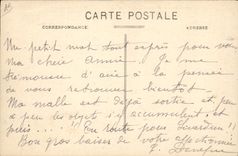 CARTE POSTALE
CORRESPONDANCE
ADRESSE
Un petit mot tout exprès pour vous
ma chère Annie. Je me
trémousse d'aise à la pensée
de vous retrouver bientôt
Ma malle est déjà sortie et, peu
à peu les objets s'y accumulent, et
puis...." En route pour
Bon gros baisers de votre affectionnée